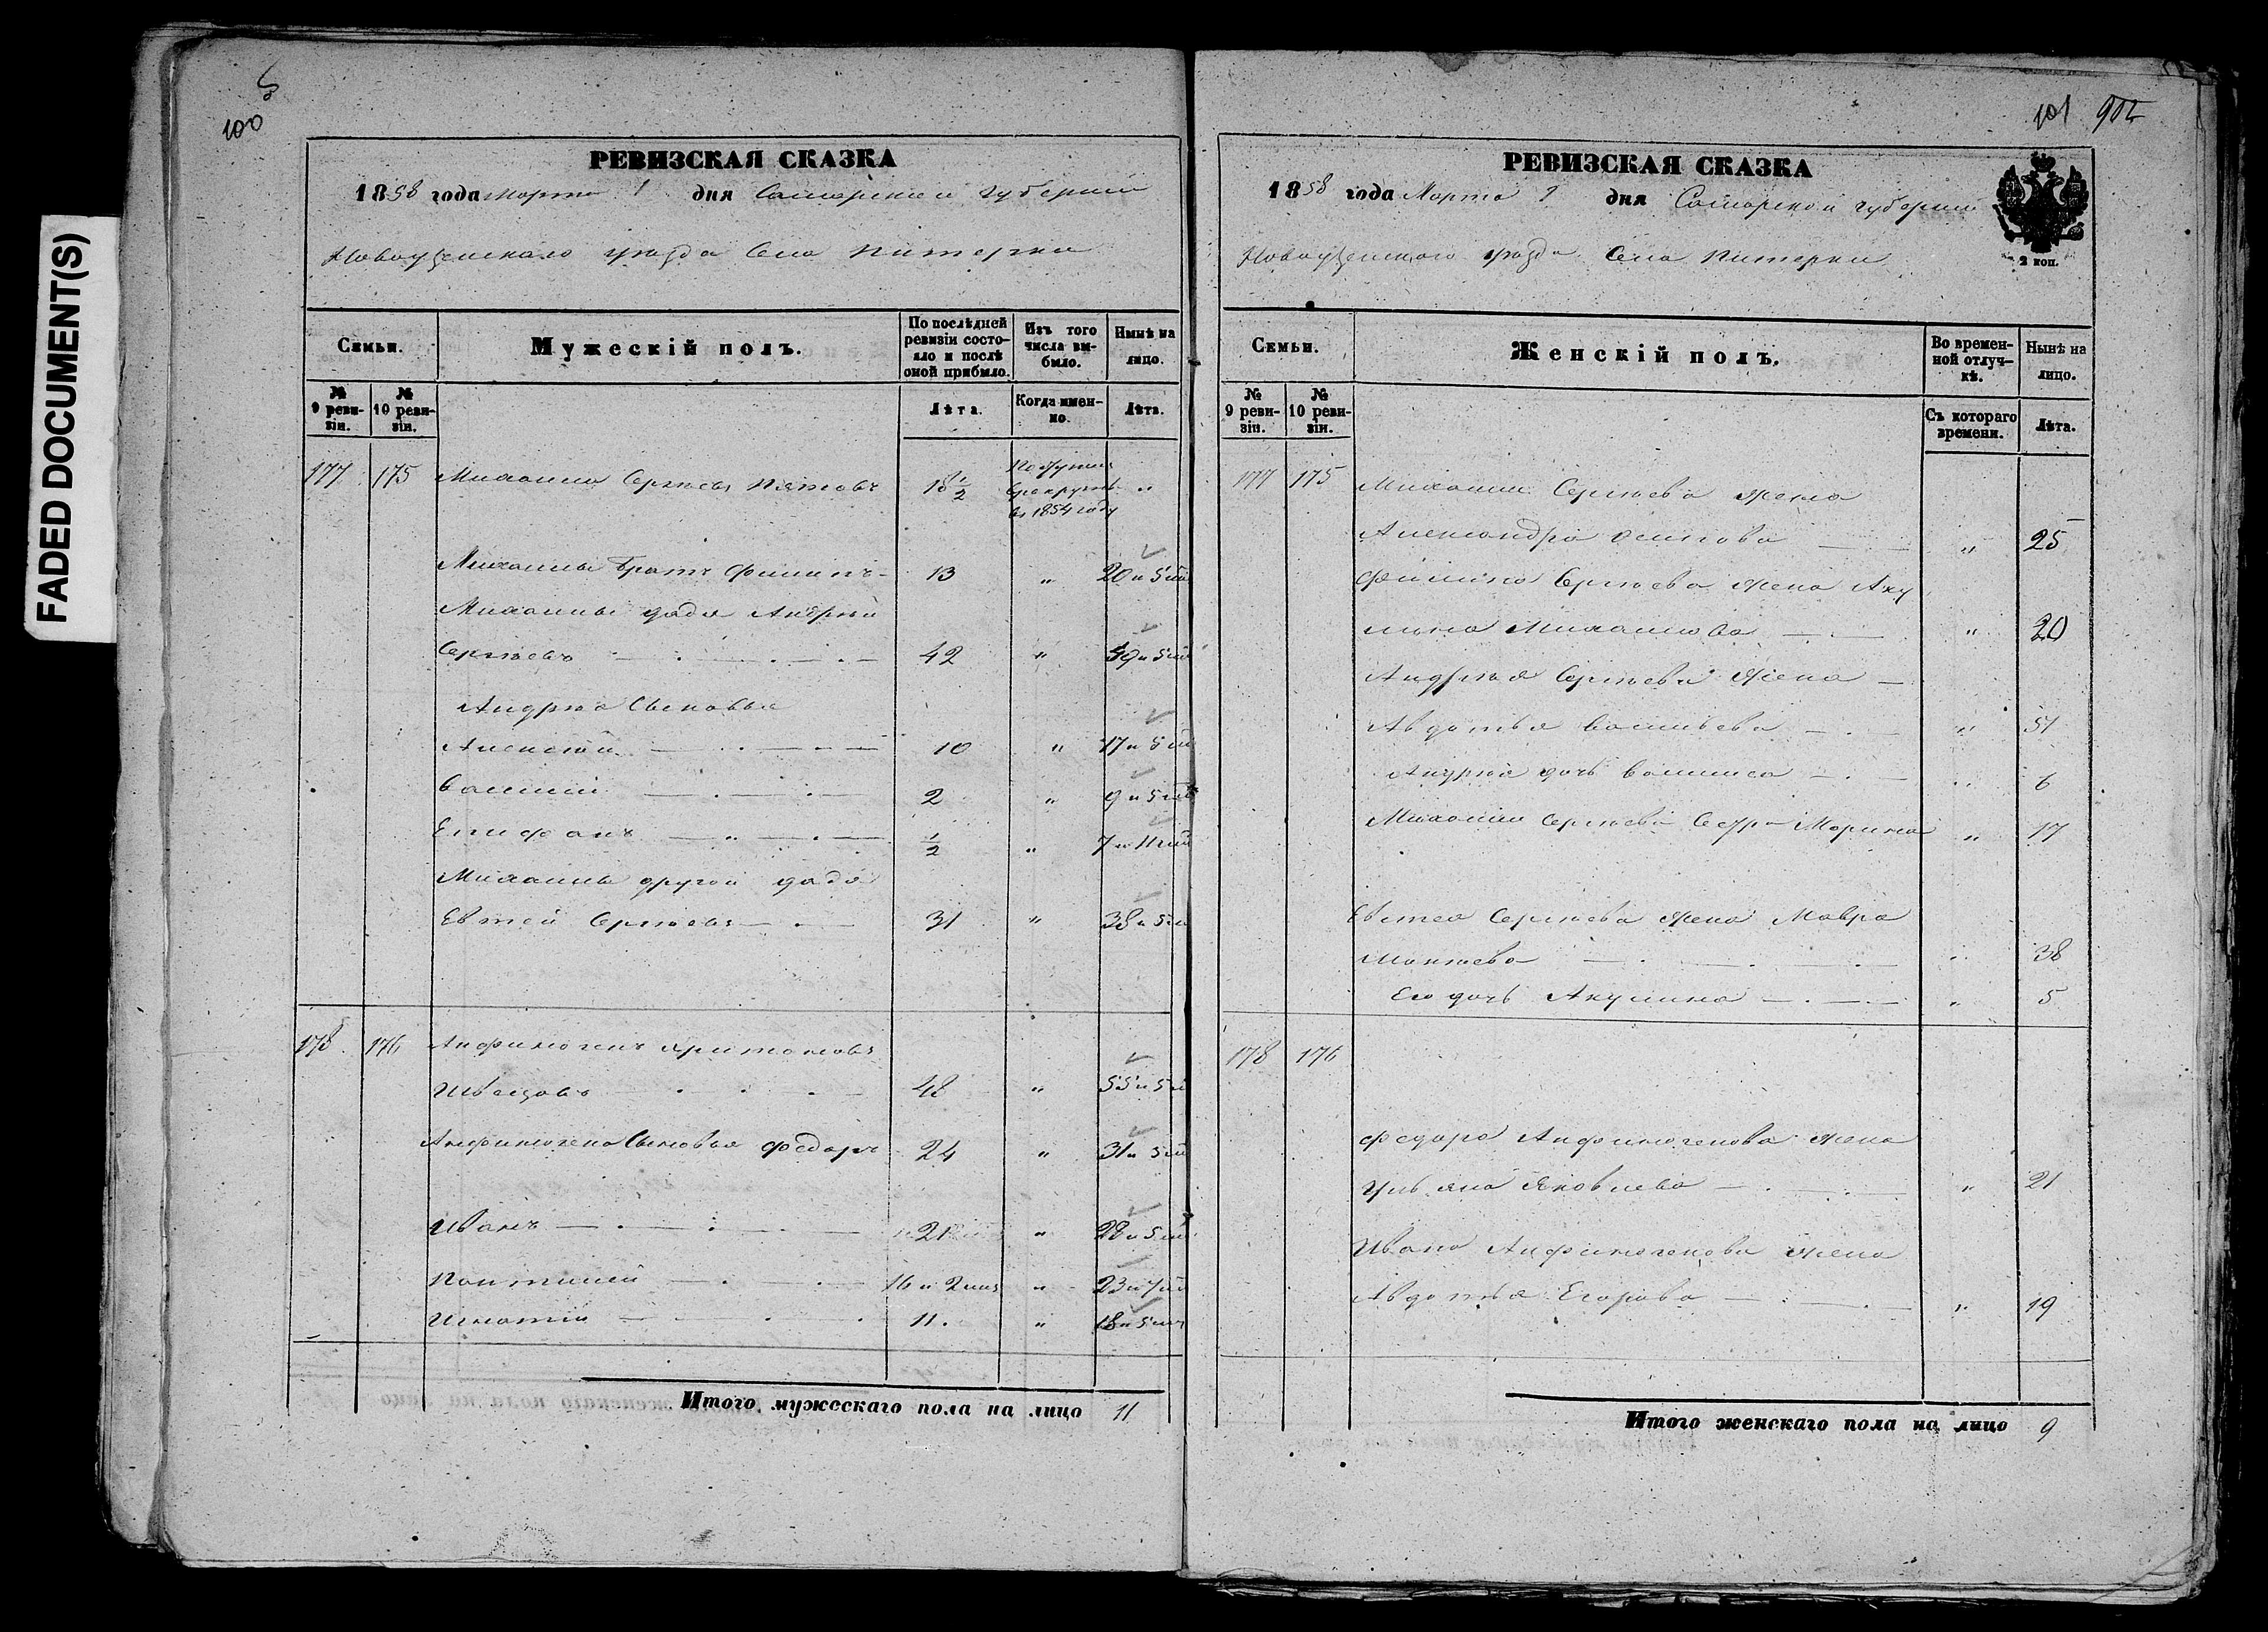 FADED DOCUMENT(S)
100
РЕВИЗСКАЯ СКАЗКА
1858 года Марта 1 дня Самарской губернии
Новоузенскаго уезда Села Питерки
Семьи.
Мужескій полъ.
По послѣдней ревизіи состояло и послѣ оной прибыло.
Изъ того числа выбыло.
Нынѣ на лицо.
№ 9 ревизіи.
№ 10 ревизіи.
Лѣта.
Когда именно.
Лѣта.
177 175 Михаила Сергѣевъ Пятовъ 18 1/2 в 1854 году "
Михаилы братъ Филипъ 13 " 20 и 5
Михаилы дядя Андрей
Сергѣевъ 42 " 49 и 5
Андрея Сыновья
Алексѣй 10 " 17 и 5
Василій 2 " 9 и 5
Епифанъ 1/2 " 7 и 11
Михаилы другой дядя
Евтей Сергѣевъ 31 " 38 и 5
178 176 Анфиногенъ Харитоновъ
Швецовъ 48 " 55 и 5
Анфиногена Сыновья Федоръ 24 " 31 и 5
Иванъ 21 " 28 и 5
Пантилей 16 и 2 " 23 и 7
Игнатій 11. " 18 и 5
Итого мужескаго пола на лицо 11
101
РЕВИЗСКАЯ СКАЗКА
1858 года Марта 1 дня Самарской губернии
Новоузенскаго уезда Села Питерки
2 коп.
Семьи.
Женскій полъ.
Во временной отлучкѣ.
Нынѣ на лицо.
№ 9 ревизіи.
№ 10 ревизіи.
Съ котораго времени.
Лѣта.
177 175 Михаилы Сергѣева жена
Александра Осипова " 25
Филипа Сергѣева жена Аку
лина Михаилова " 20
Андрея Сергѣева жена
Авдотья Васильева " 51
Андрея дочь Василиса " 6
Михаилы Сергѣева Сестра Марина " 17
Евтея Сергѣева жена Мавра
Макѣева " 38
Его дочь Акулина " 5
178 176
Федора Анфиногенова жена
Ульяна Яковлева " 21
Ивана Анфиногенова жена
Авдотья Егорова " 19
Итого женскаго пола на лицо 9